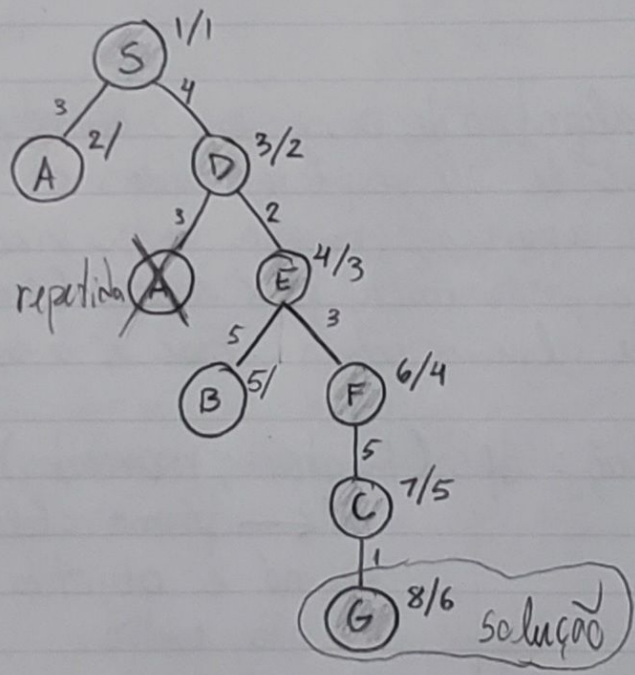 S 1/1
3 4
A 2/ D 3/2
3 2
repetida A E 4/3
5 3
B 5/ F 6/4
5
C 7/5
1
G 8/6 solução